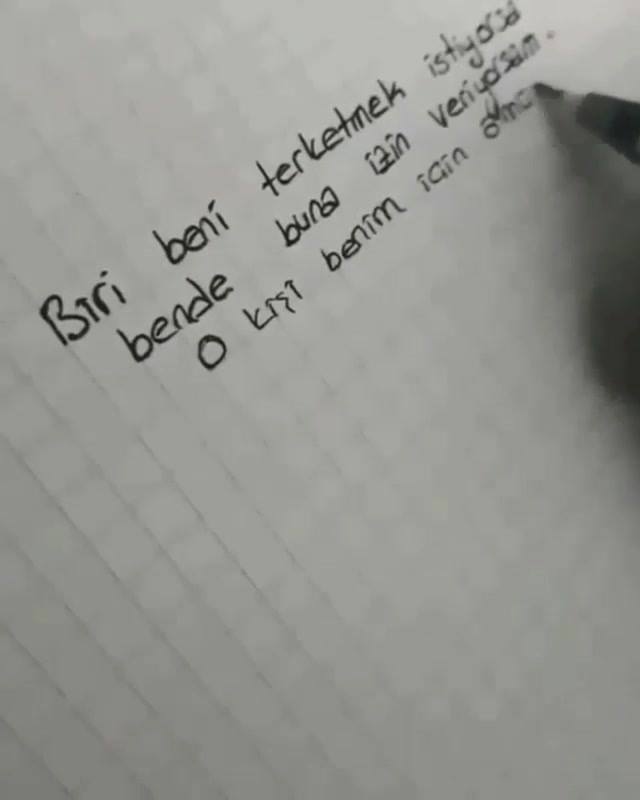 Biri beni terketmek istiyorsa
bende buna izin veriyorsam.
O kişi benim için